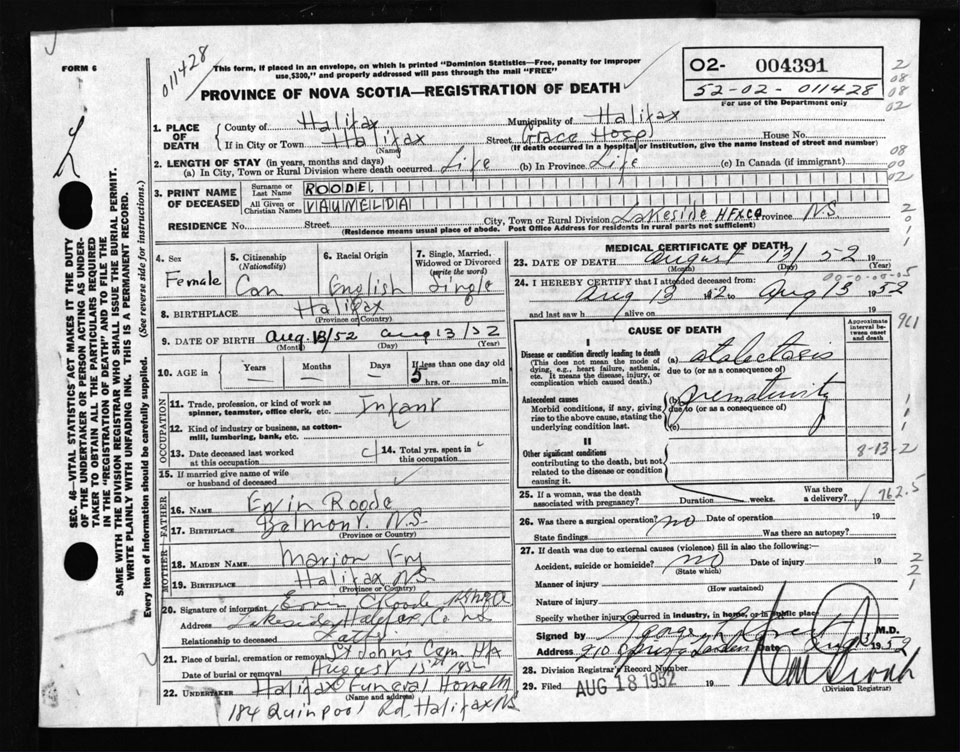 FORM 6
011428
This form, if placed in an envelope, on which is printed "Dominion Statistics—Free, penalty for improper
use, $300," and properly addressed will pass through the mail "FREE"
PROVINCE OF NOVA SCOTIA—REGISTRATION OF DEATH
O2- 004391
52-02-011428
For use of the Department only
2
08
08
02
1. PLACE OF DEATH
County of Halifax Municipality of Halifax
If in City or Town Halifax Street Grace Hosp House No.
(Name) (If death occurred in a hospital or institution, give the name instead of street and number)
2. LENGTH OF STAY (in years, months and days)
(a) In City, Town or Rural Division where death occurred Life (b) In Province Life (c) In Canada (if immigrant)
08
00
02
3. PRINT NAME OF DECEASED
Surname or Last Name ROODE
All Given or Christian Names VAUMELDA
RESIDENCE No. Street City, Town or Rural Division Lakeside HFX CO Province N.S.
(Residence means usual place of abode. Post Office Address for residents in rural parts not sufficient)
2
0
1
1
4. Sex Female
5. Citizenship (Nationality) Can
6. Racial Origin English
7. Single, Married, Widowed or Divorced (write the word) Single
8. BIRTHPLACE Halifax
(Province or Country)
9. DATE OF BIRTH Aug. 13/52 Aug 13/52
(Month) (Day) (Year)
10. AGE in Years Months Days If less than one day old
5 hrs. or min.
OCCUPATION
11. Trade, profession, or kind of work as spinner, teamster, office clerk, etc. Infant
12. Kind of industry or business, as cotton-mill, lumbering, bank, etc.
13. Date deceased last worked at this occupation
14. Total yrs. spent in this occupation
15. If married give name of wife or husband of deceased
FATHER
16. NAME Ervin Roode
17. BIRTHPLACE N.S.
(Province or Country)
MOTHER
18. MAIDEN NAME Marion Fry
19. BIRTHPLACE Halifax NS
(Province or Country)
20. Signature of informant Roode
Address Lakeside Halifax Co NS
Relationship to deceased
21. Place of burial, cremation or removal St Johns Cem.
Date of burial or removal August 15th 1952
22. UNDERTAKER Halifax Funeral Home
(Name and address)
184 Quinpool Rd. Halifax NS
MEDICAL CERTIFICATE OF DEATH
23. DATE OF DEATH August 13/52 19
(Month) (Day) (Year)
24. I HEREBY CERTIFY that I attended deceased from:
Aug 13 to Aug 13 1952
and last saw h alive on 19
961
CAUSE OF DEATH
Approximate interval between onset and death
I
Disease or condition directly leading to death
(This does not mean the mode of dying, e.g., heart failure, asthenia, etc. It means the disease, injury, or complication which caused death.)
(a) atelectasis
due to (or as a consequence of)
Antecedent causes
Morbid conditions, if any, giving rise to the above cause, stating the underlying condition last.
(b) prematurity
due to (or as a consequence of)
(c)
II
Other significant conditions
contributing to the death, but not related to the disease or condition causing it.
8-13-2
25. If a woman, was the death associated with pregnancy? Duration weeks. Was there a delivery?
762.5
26. Was there a surgical operation? no Date of operation 19
State findings Was there an autopsy?
27. If death was due to external causes (violence) fill in also the following:—
Accident, suicide or homicide? no Date of injury 19
(State which)
Manner of injury
(How sustained)
Nature of injury
Specify whether injury occurred in industry, in home, or in public place
2
2
1
Signed by M.D.
Address 210 Spring Garden Date 1952
28. Division Registrar's Record Number
29. Filed AUG 18 1952 19
(Division Registrar)
SEC. 46—VITAL STATISTICS' ACT MAKES IT THE DUTY
OF THE UNDERTAKER OR PERSON ACTING AS UNDER-
TAKER TO OBTAIN ALL THE PARTICULARS REQUIRED
IN THE "REGISTRATION OF DEATH" AND TO FILE THE
SAME WITH THE DIVISION REGISTRAR WHO SHALL ISSUE THE BURIAL PERMIT.
WRITE PLAINLY WITH UNFADING INK. THIS IS A PERMANENT RECORD.
Every item of information should be carefully supplied. (See reverse side for instructions.)